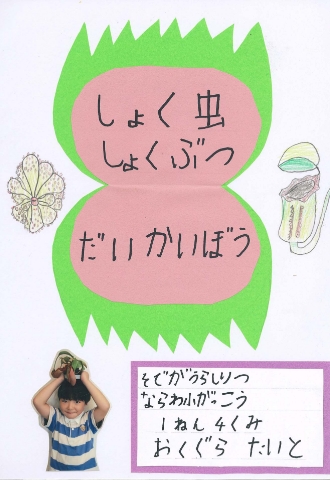 しょく虫
しょくぶつ
だいかいぼう
そでがうらしりつ
ならわ小がっこう
1ねん4くみ
おくぐら たいと